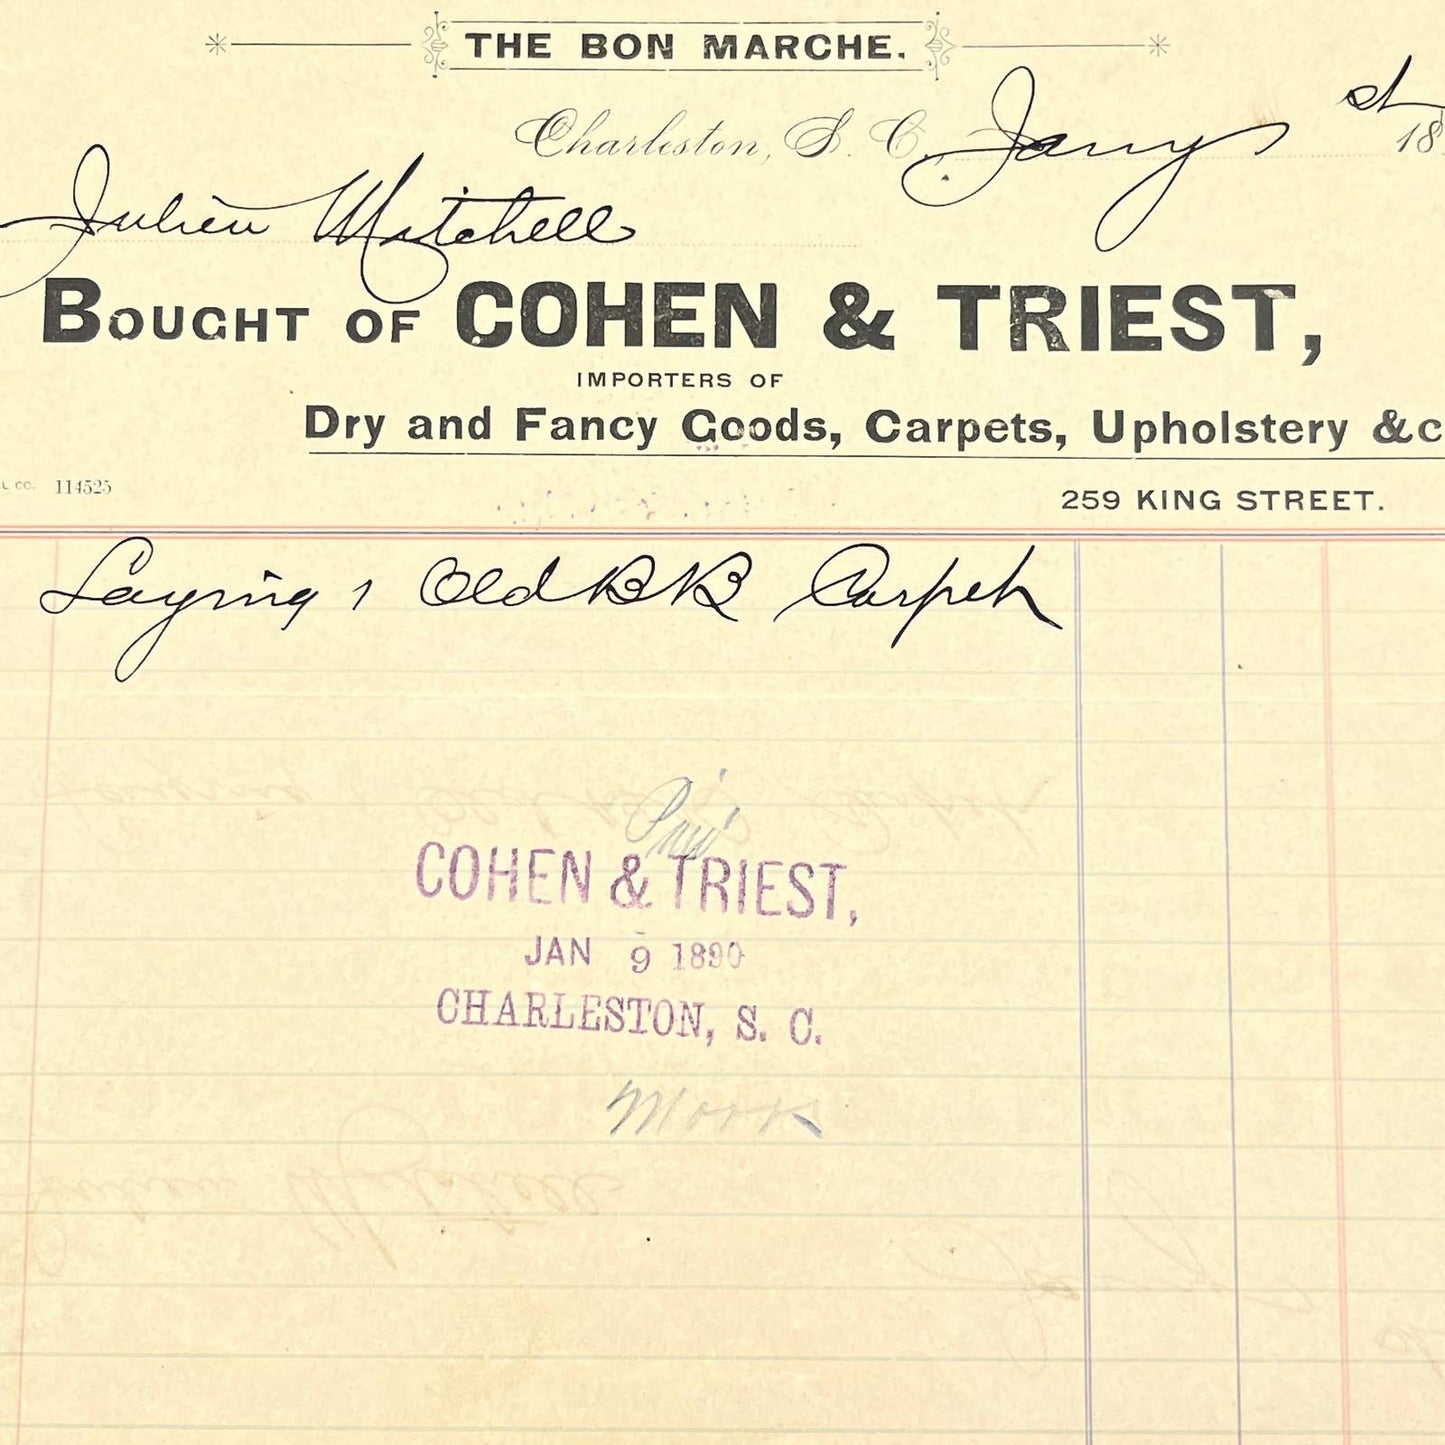 THE BON MARCHE.
Charleston, S. C. Jany st 18
Julien Mitchell
BOUGHT OF COHEN & TRIEST,
IMPORTERS OF
Dry and Fancy Goods, Carpets, Upholstery &c
L CO. 114525
259 KING STREET.
Laying 1 Old BB Carpet
Paid
COHEN & TRIEST,
JAN 9 1890
CHARLESTON, S. C.